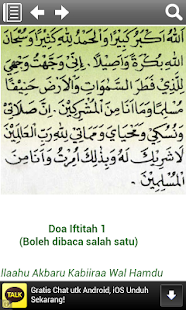 اَللهُ اَكْبَرُ كَبِيْرًا وَالْحَمْدُ لِلّٰهِ كَثِيْرًا وَسُبْحَانَ
اللهِ بُكْرَةً وَاَصِيْلًا . اِنِّى وَجَّهْتُ وَجْهِيَ
لِلَّذِى فَطَرَ السَّمٰوَاتِ وَالْاَرْضَ حَنِيْفًا
مُسْلِمًا وَمَا اَنَا مِنَ الْمُشْرِكِيْنَ . اِنَّ صَلَاتِى
وَنُسُكِى وَمَحْيَايَ وَمَمَاتِى لِلّٰهِ رَبِّ الْعَالَمِيْنَ
لَا شَرِيْكَ لَهُ وَبِذٰلِكَ اُمِرْتُ وَاَنَا مِنَ
الْمُسْلِمِيْنَ .
Doa Iftitah 1
(Boleh dibaca salah satu)
llaahu Akbaru Kabiiraa Wal Hamdu
TALK
Gratis Chat utk Android, iOS Unduh
Sekarang!